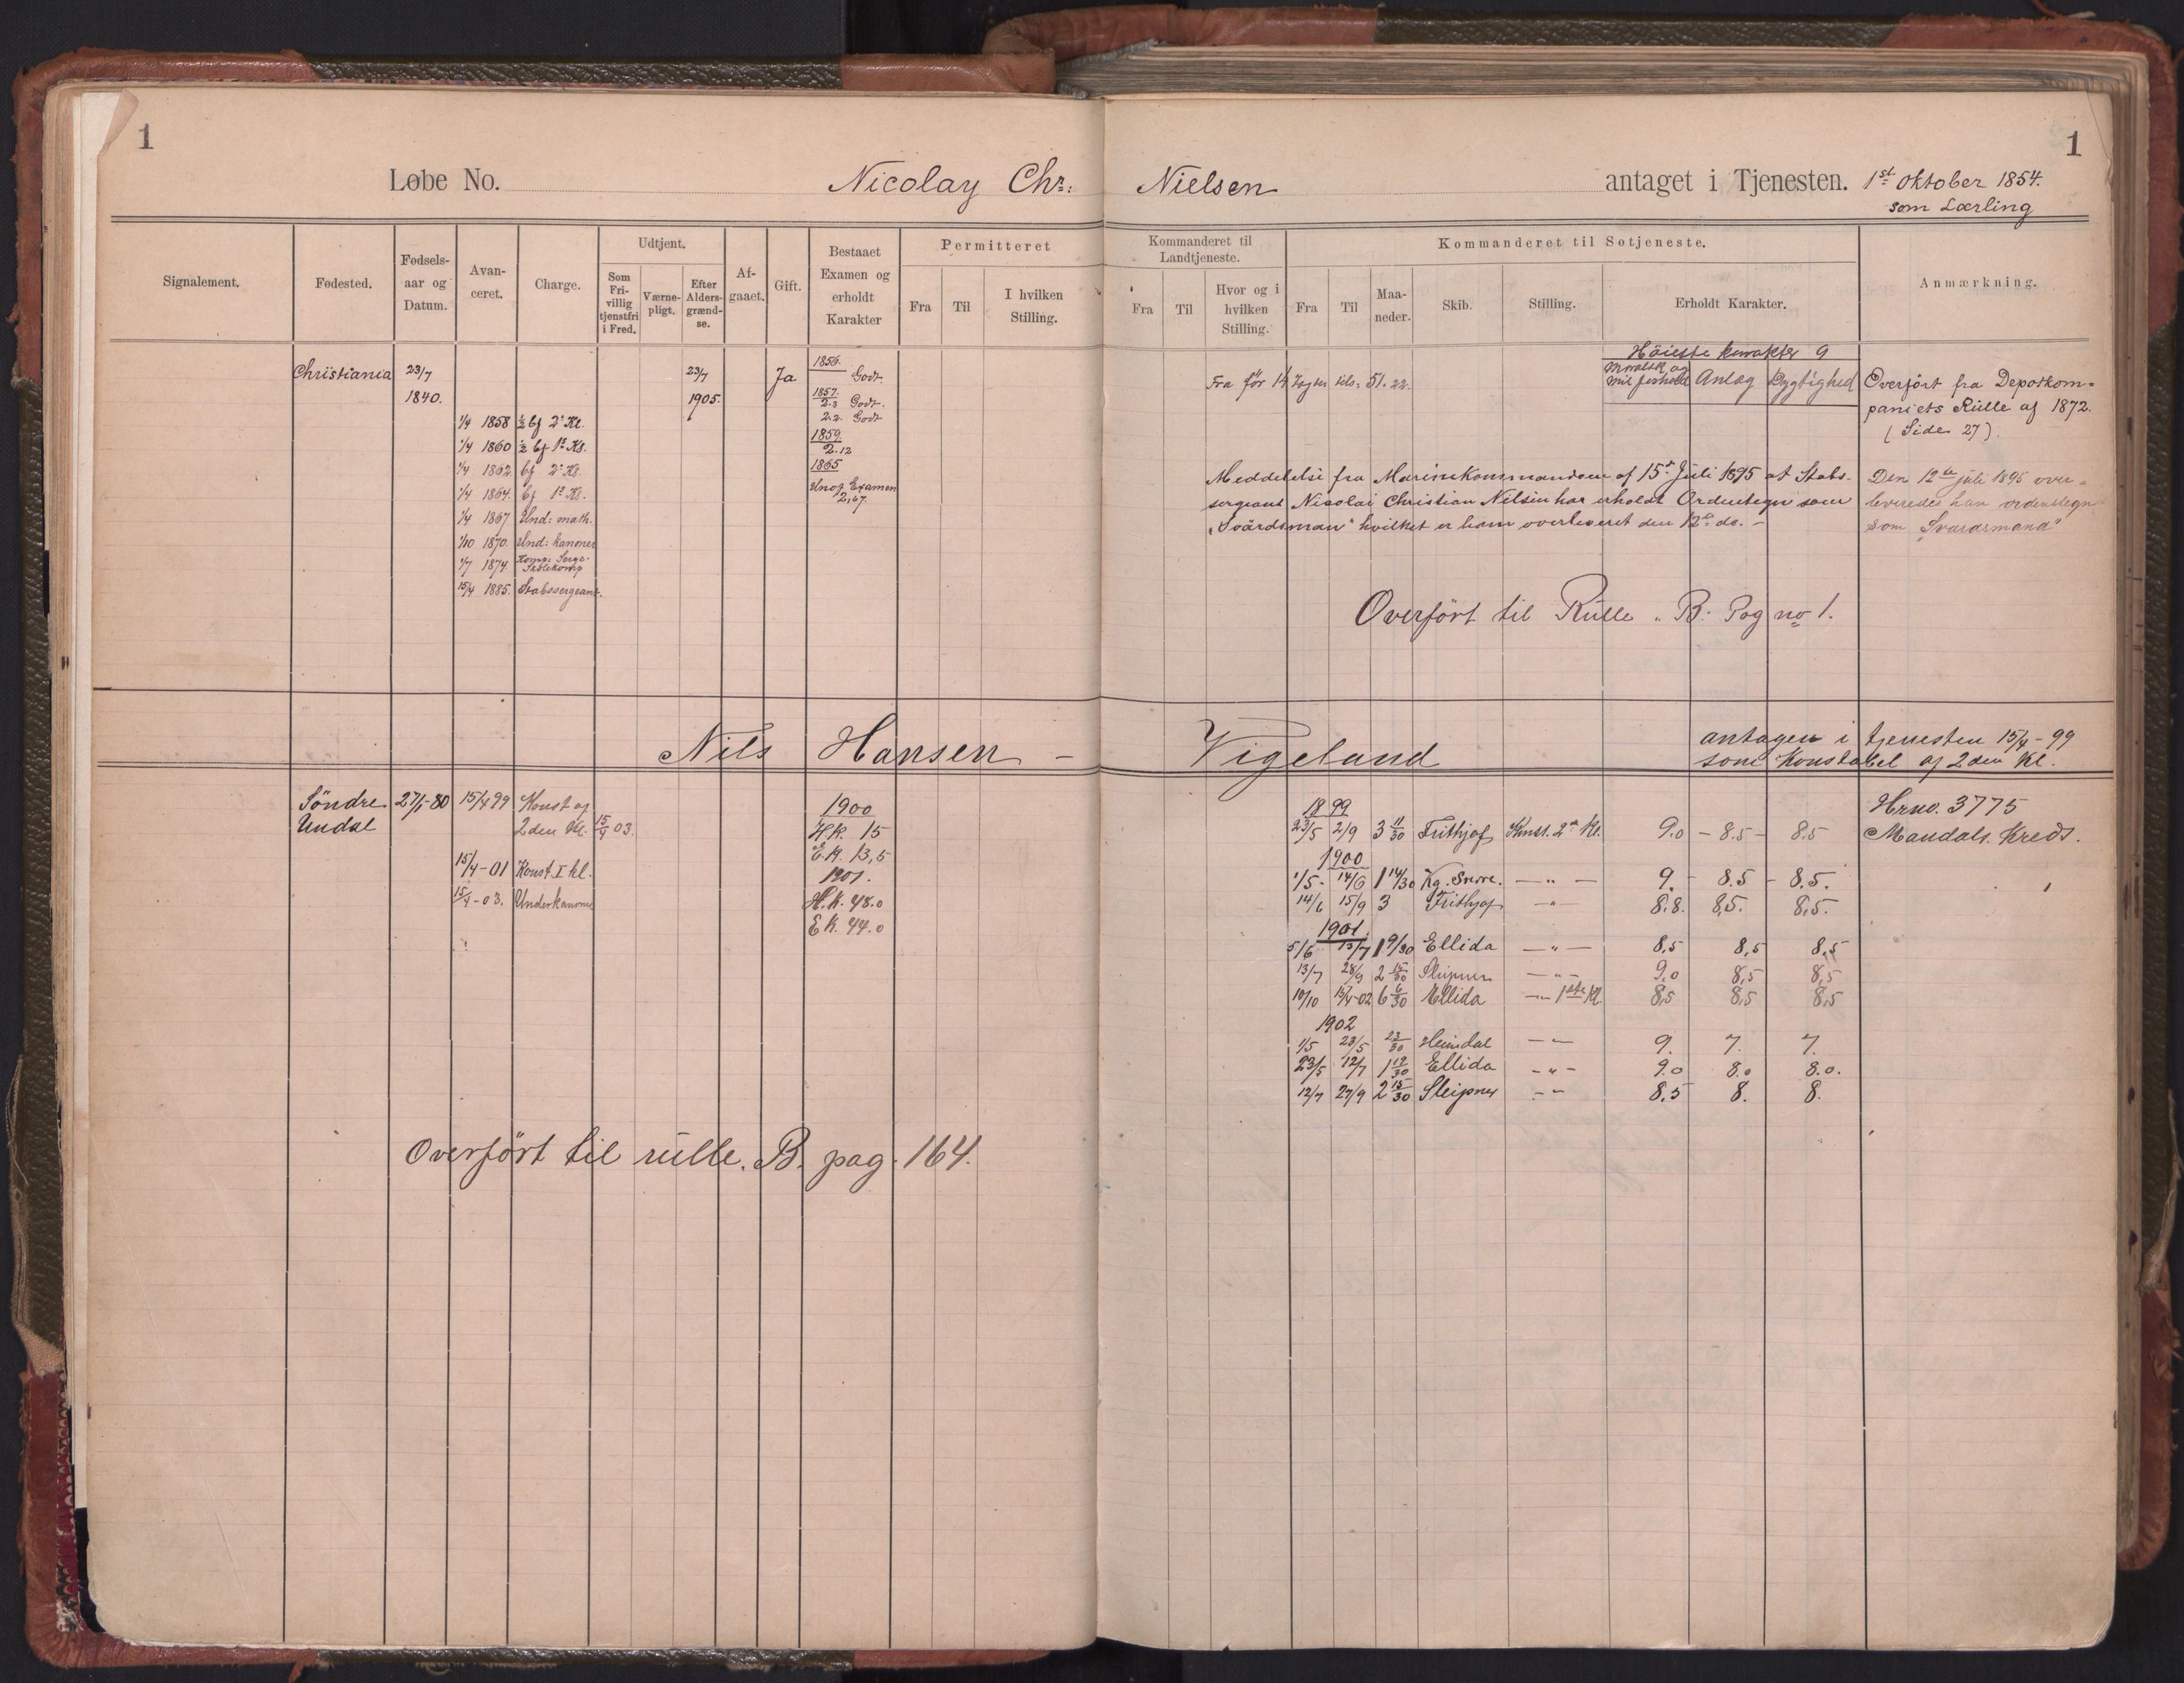 1
1
Løbe No. Nicolay Chr: Nielsen antaget i Tjenesten. 1st Oktober 1854.
som Lærling
Signalement.
Fødested.
Fødsels-
aar og
Datum.
Avan-
ceret.
Charge.
Udtjent.
Som
Fri-
villig
tjenstfri
i Fred.
Værne-
pligt.
Efter
Alders-
grænd-
se.
Af-
gaaet.
Gift.
Bestaaet
Examen og
erholdt
Karakter
Permitteret
Fra
Til
I hvilken
Stilling.
Kommanderet til
Landtjeneste.
Fra
Til
Hvor og i
hvilken
Stilling.
Kommanderet til Søtjeneste.
Fra
Til
Maa-
neder.
Skib.
Stilling.
Erholdt Karakter.
Anmærkning.
Christiania
23/7
1840.
1/4 1858 ½ bf 2 Kl.
1/4 1860 ½ bf 1ste Kl.
1/4 1862 bf 2 Kl.
1/4 1864. bf 1ste Kl.
1/4 1867 Und: math.
1/10 1870. Und: kanoner
1/7 1874
15/4 1885. Stabssergeant.
23/7
1905.
Ja
1856.
Godt
1857.
2.3 Godt.
2.2 Godt
1859
2.12
1865
Unof Examen
2,67.
Fra før 14 Togter tils. 51.22.
Höieste karakter 9
Moralsk og
mil forhold Anlæg Dygtighed
Overført fra Depotkom=
paniets Rülle af 1872.
(Side 27).
Meddelelse fra Marinekommandoen af 15de Juli 1895 at Stabs-
sergeant Nicolai Christian Nielsen har erholdt Ordenstegn som
"Svärdsman" hvilket er ham overleveret den 12te ds. -
Den 12te juli 1895 over=
leveredes han ordenstegn
som "Svärdsmand"
Overført til Rülle "B. Pag no 1.
Nils Hansen - Vigeland
antagen i tjenesten 15/4-99
som Konstabel af 2den Kl.
Söndre
Undal
27/1-80
15/4 99 Konst af
2den Kl. 15/4 03.
15/4-01 Konst. I kl.
15/4-03. Underkanoner
1900
H.k. 15
E.k. 13,5
1901.
H.k. 48.0
E k. 44.0
1899
23/5 2/9 3 11/30 Frithjof Konst. 2den Kl. 9.0 - 8.5 - 8.5
1900
1/5- 14/6 1 14/30 Kg. Snorre. -"- 9. - 8.5 - 8.5.
14/6 15/9 3 Frithjof -"- 8.8. 8,5. 8,5.
1901.
5/6 13/7 1 9/30 Ellida -"- 8,5 8,5 8,5
13/7 28/9 2 15/30 Sleipner -"- 9,0 8,5 8,5
10/10 15/4-02 6 6/30 Ellida -"- 1ste Kl. 8,5 8,5 8,5
1902
1/5 23/5 23/30 Heimdal -"- 9. 7. 7.
23/5 12/7 1 19/30 Ellida -"- 9.0 8.0 8.0.
12/7 27/9 2 15/30 Sleipner -"- 8.5 8. 8.
Hrno. 3775
Mandals. Kreds.
Overført til rülle. B. pag. 164.